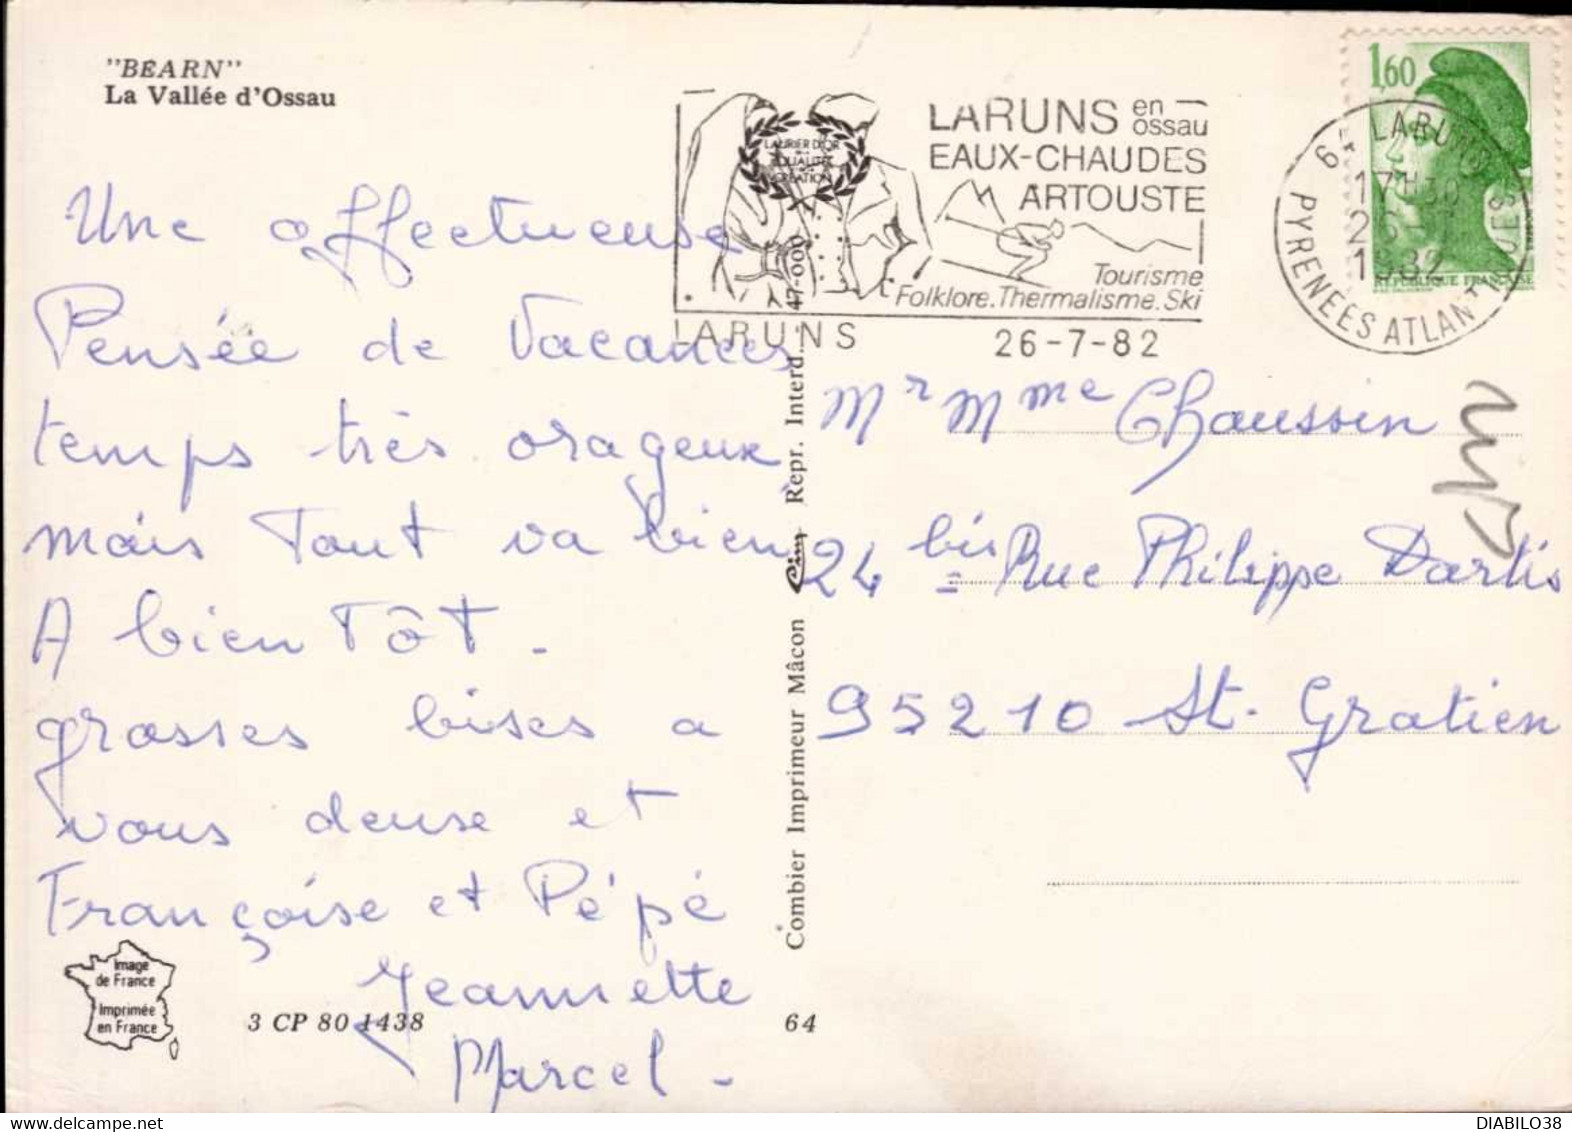 "BEARN"
La Vallée d'Ossau
Une affectueuse
Pensée de Vacances
temps très orageux
mais Tout va bien
A bien Tôt -
grosses bises a
vous deux et
Françoise et Pépé
Jeannette
Marcel -
Image
de France
Imprimée
en France
3 CP 80 1438
64
Combier Imprimeur Mâcon Cim Repr. Interd. 47-000
LAURIER D'OR
QUALITÉ
CREATION
LARUNS en ossau
EAUX-CHAUDES
ARTOUSTE
Tourisme
Folklore.Thermalisme.Ski
LARUNS 26-7-82
LARUNS
17H30
26-7
1982
PYRENEES ATLANTIQUES
1,60
REPUBLIQUE FRANCAISE
Mr Mme Chaussin
24 bis Rue Philippe Dartis
95210 St. Gratien
www.delcampe.net
DIABILO38